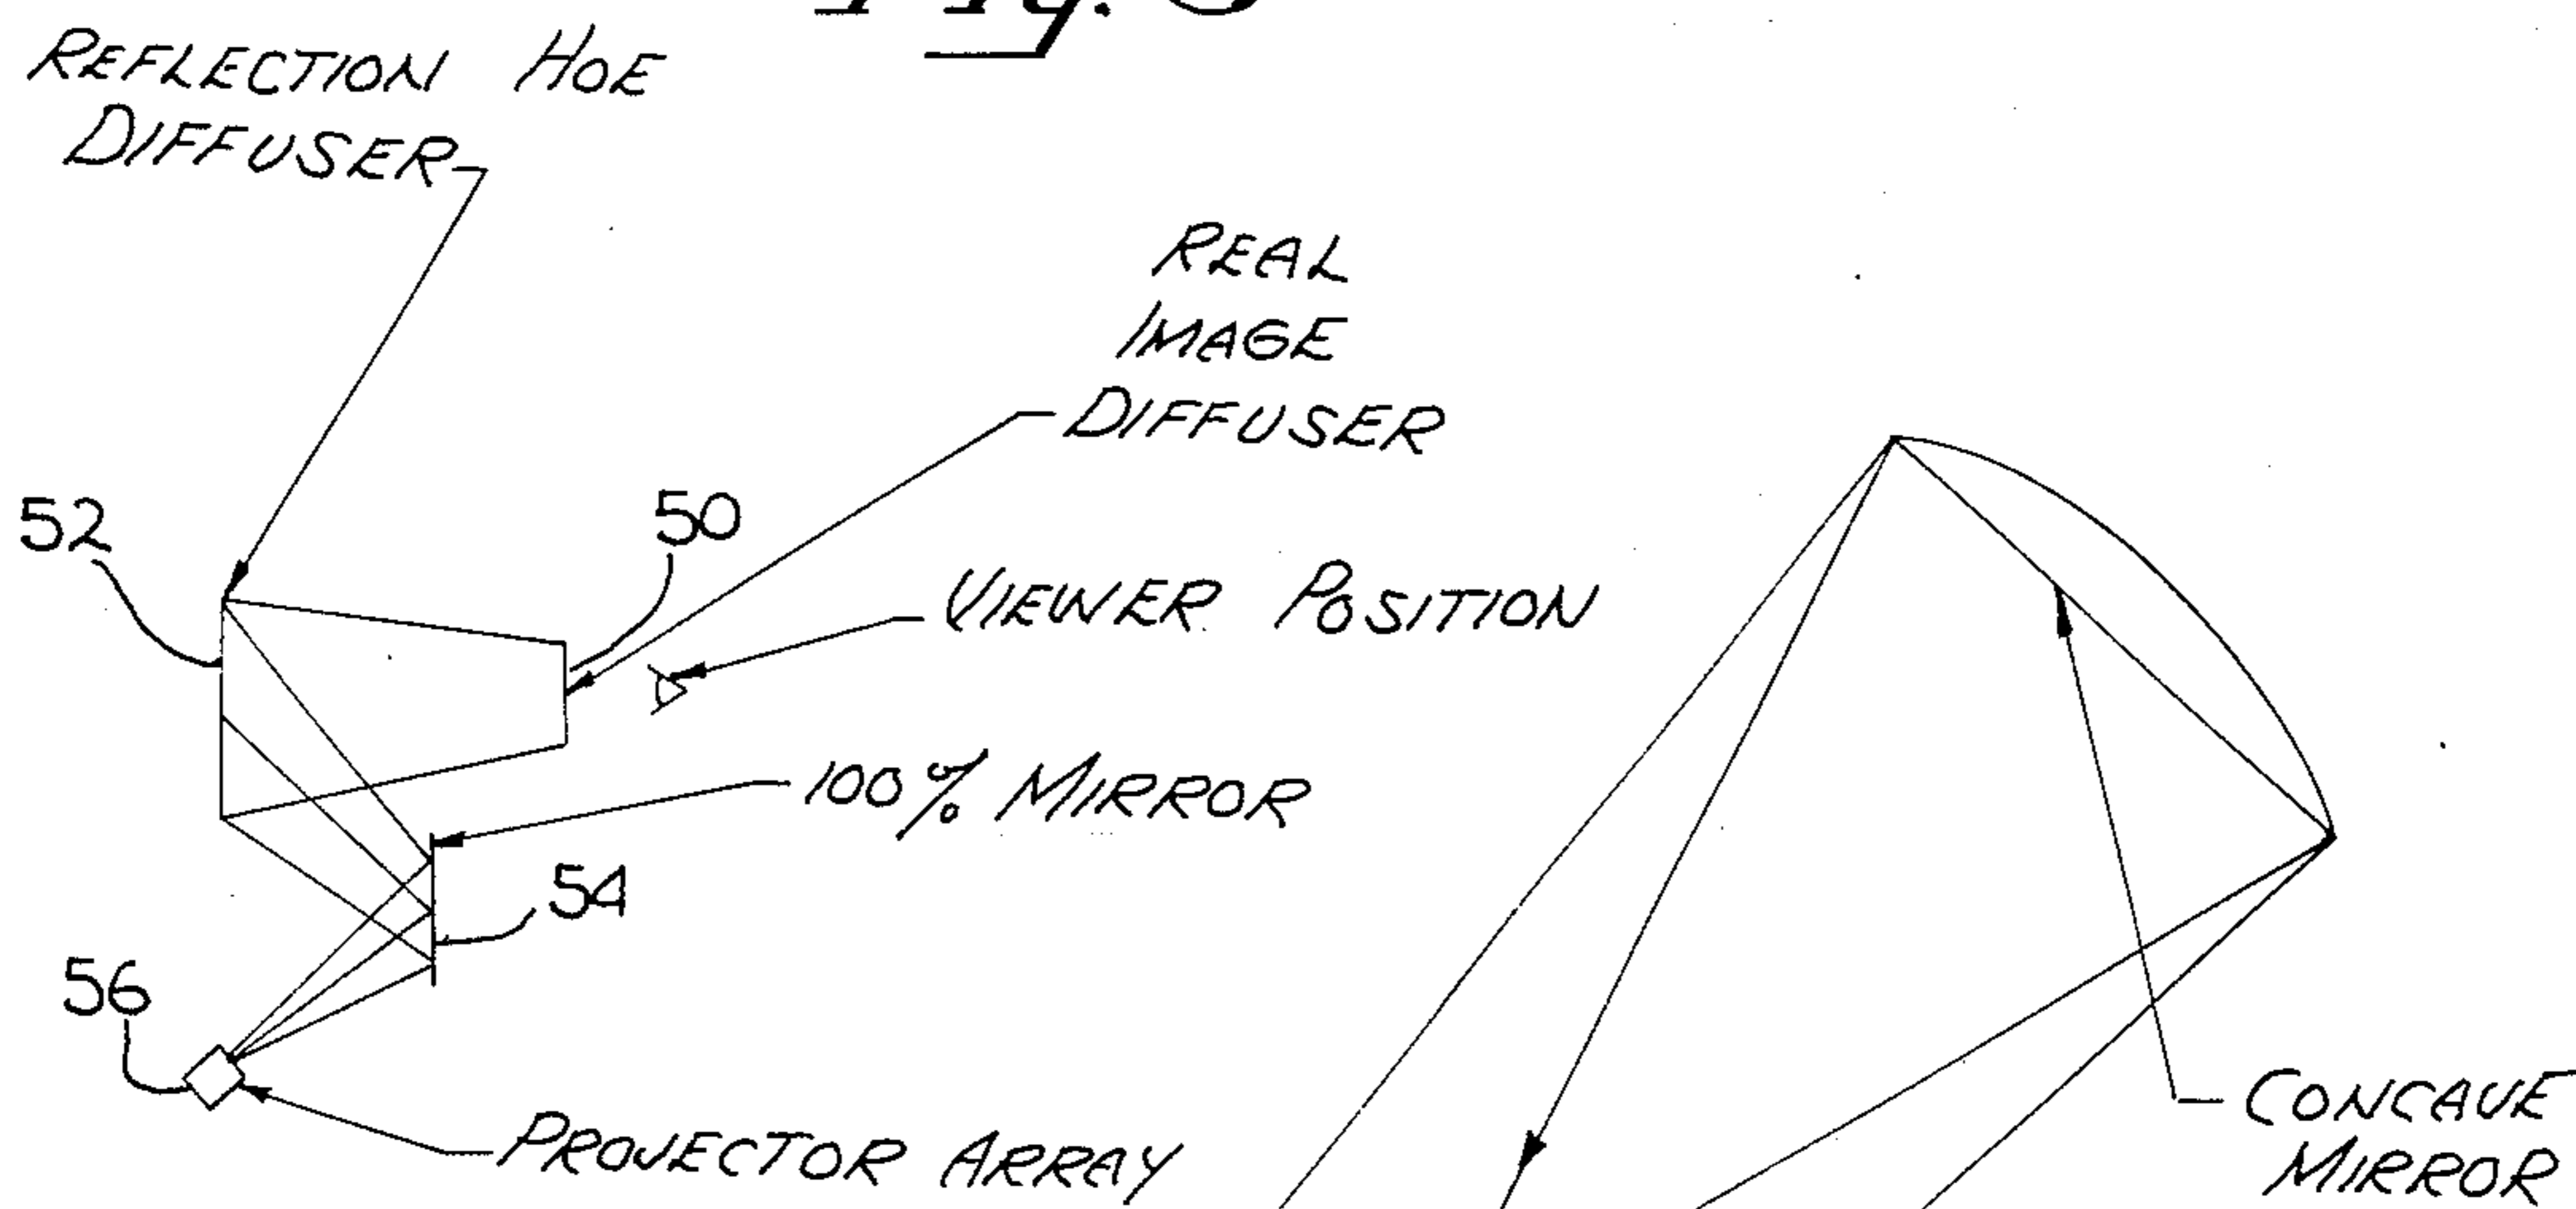 Fig.
REFLECTION HOE
DIFFUSER
REAL
IMAGE
DIFFUSER
52
50
VIEWER POSITION
100% MIRROR
54
56
PROJECTOR ARRAY
CONCAVE
MIRROR